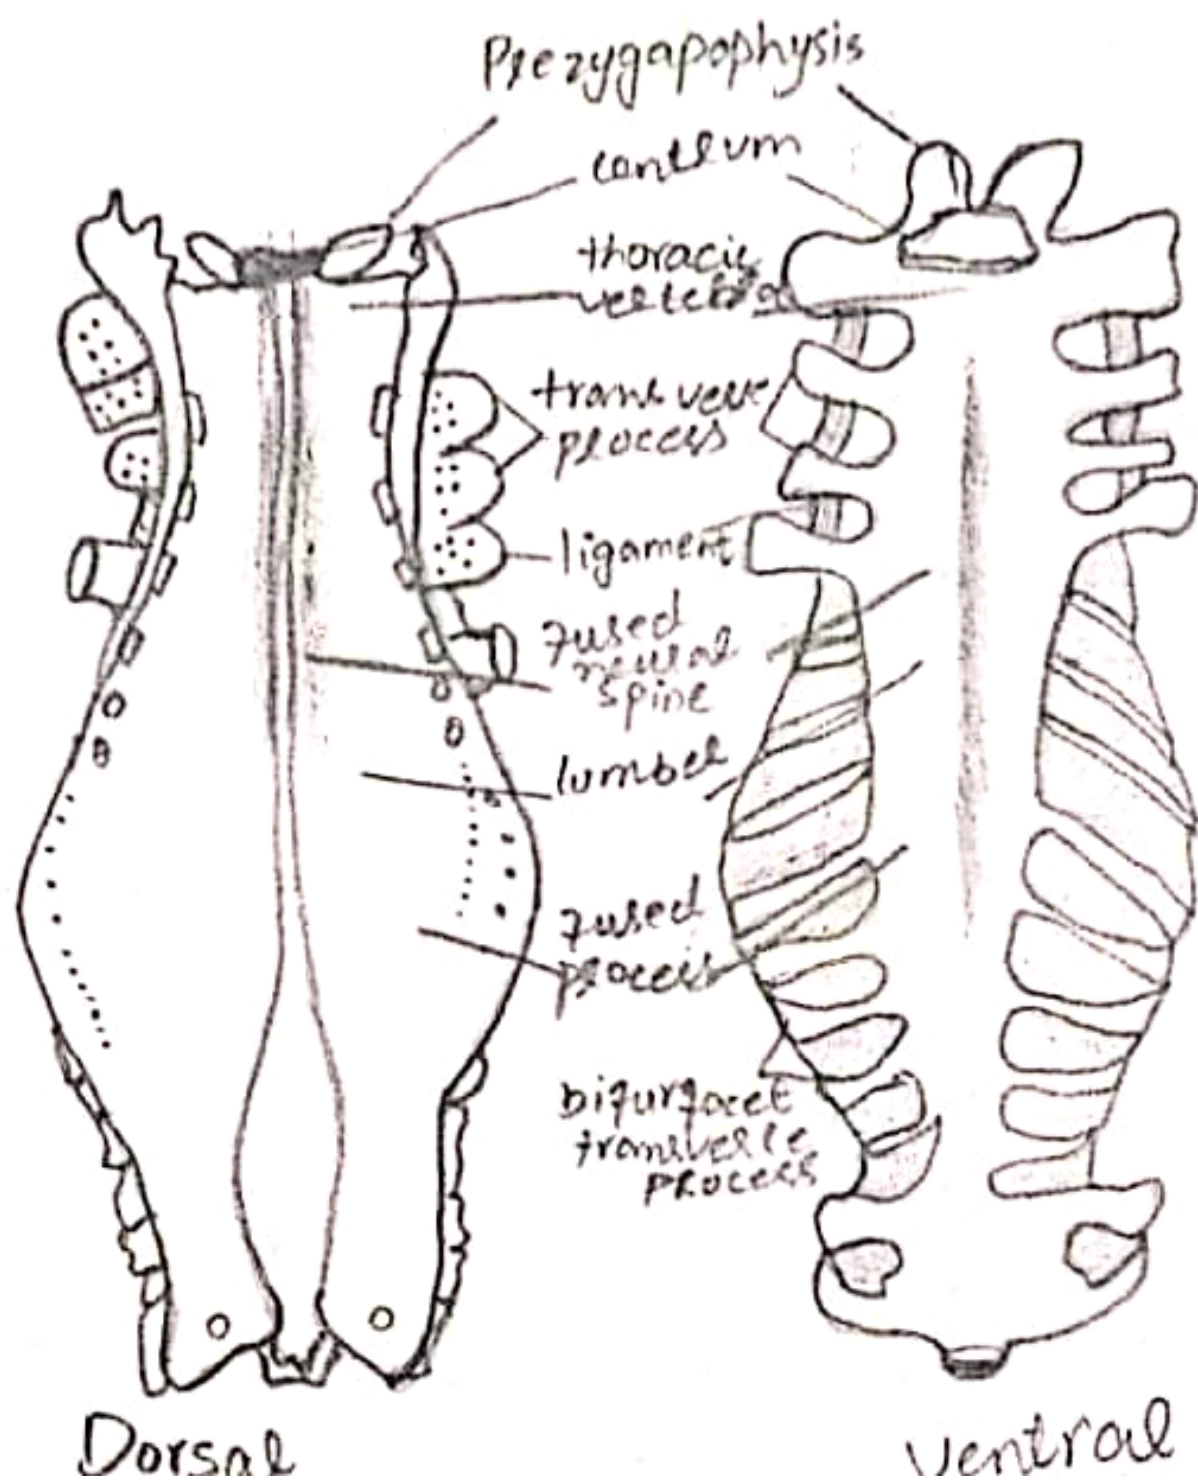 Prezygapophysis
centrum
thoracic
vertebra
transverse
process
ligament
fused
neural
spine
lumber
fused
process
bifurfacet
transverse
process
Dorsal
Ventral